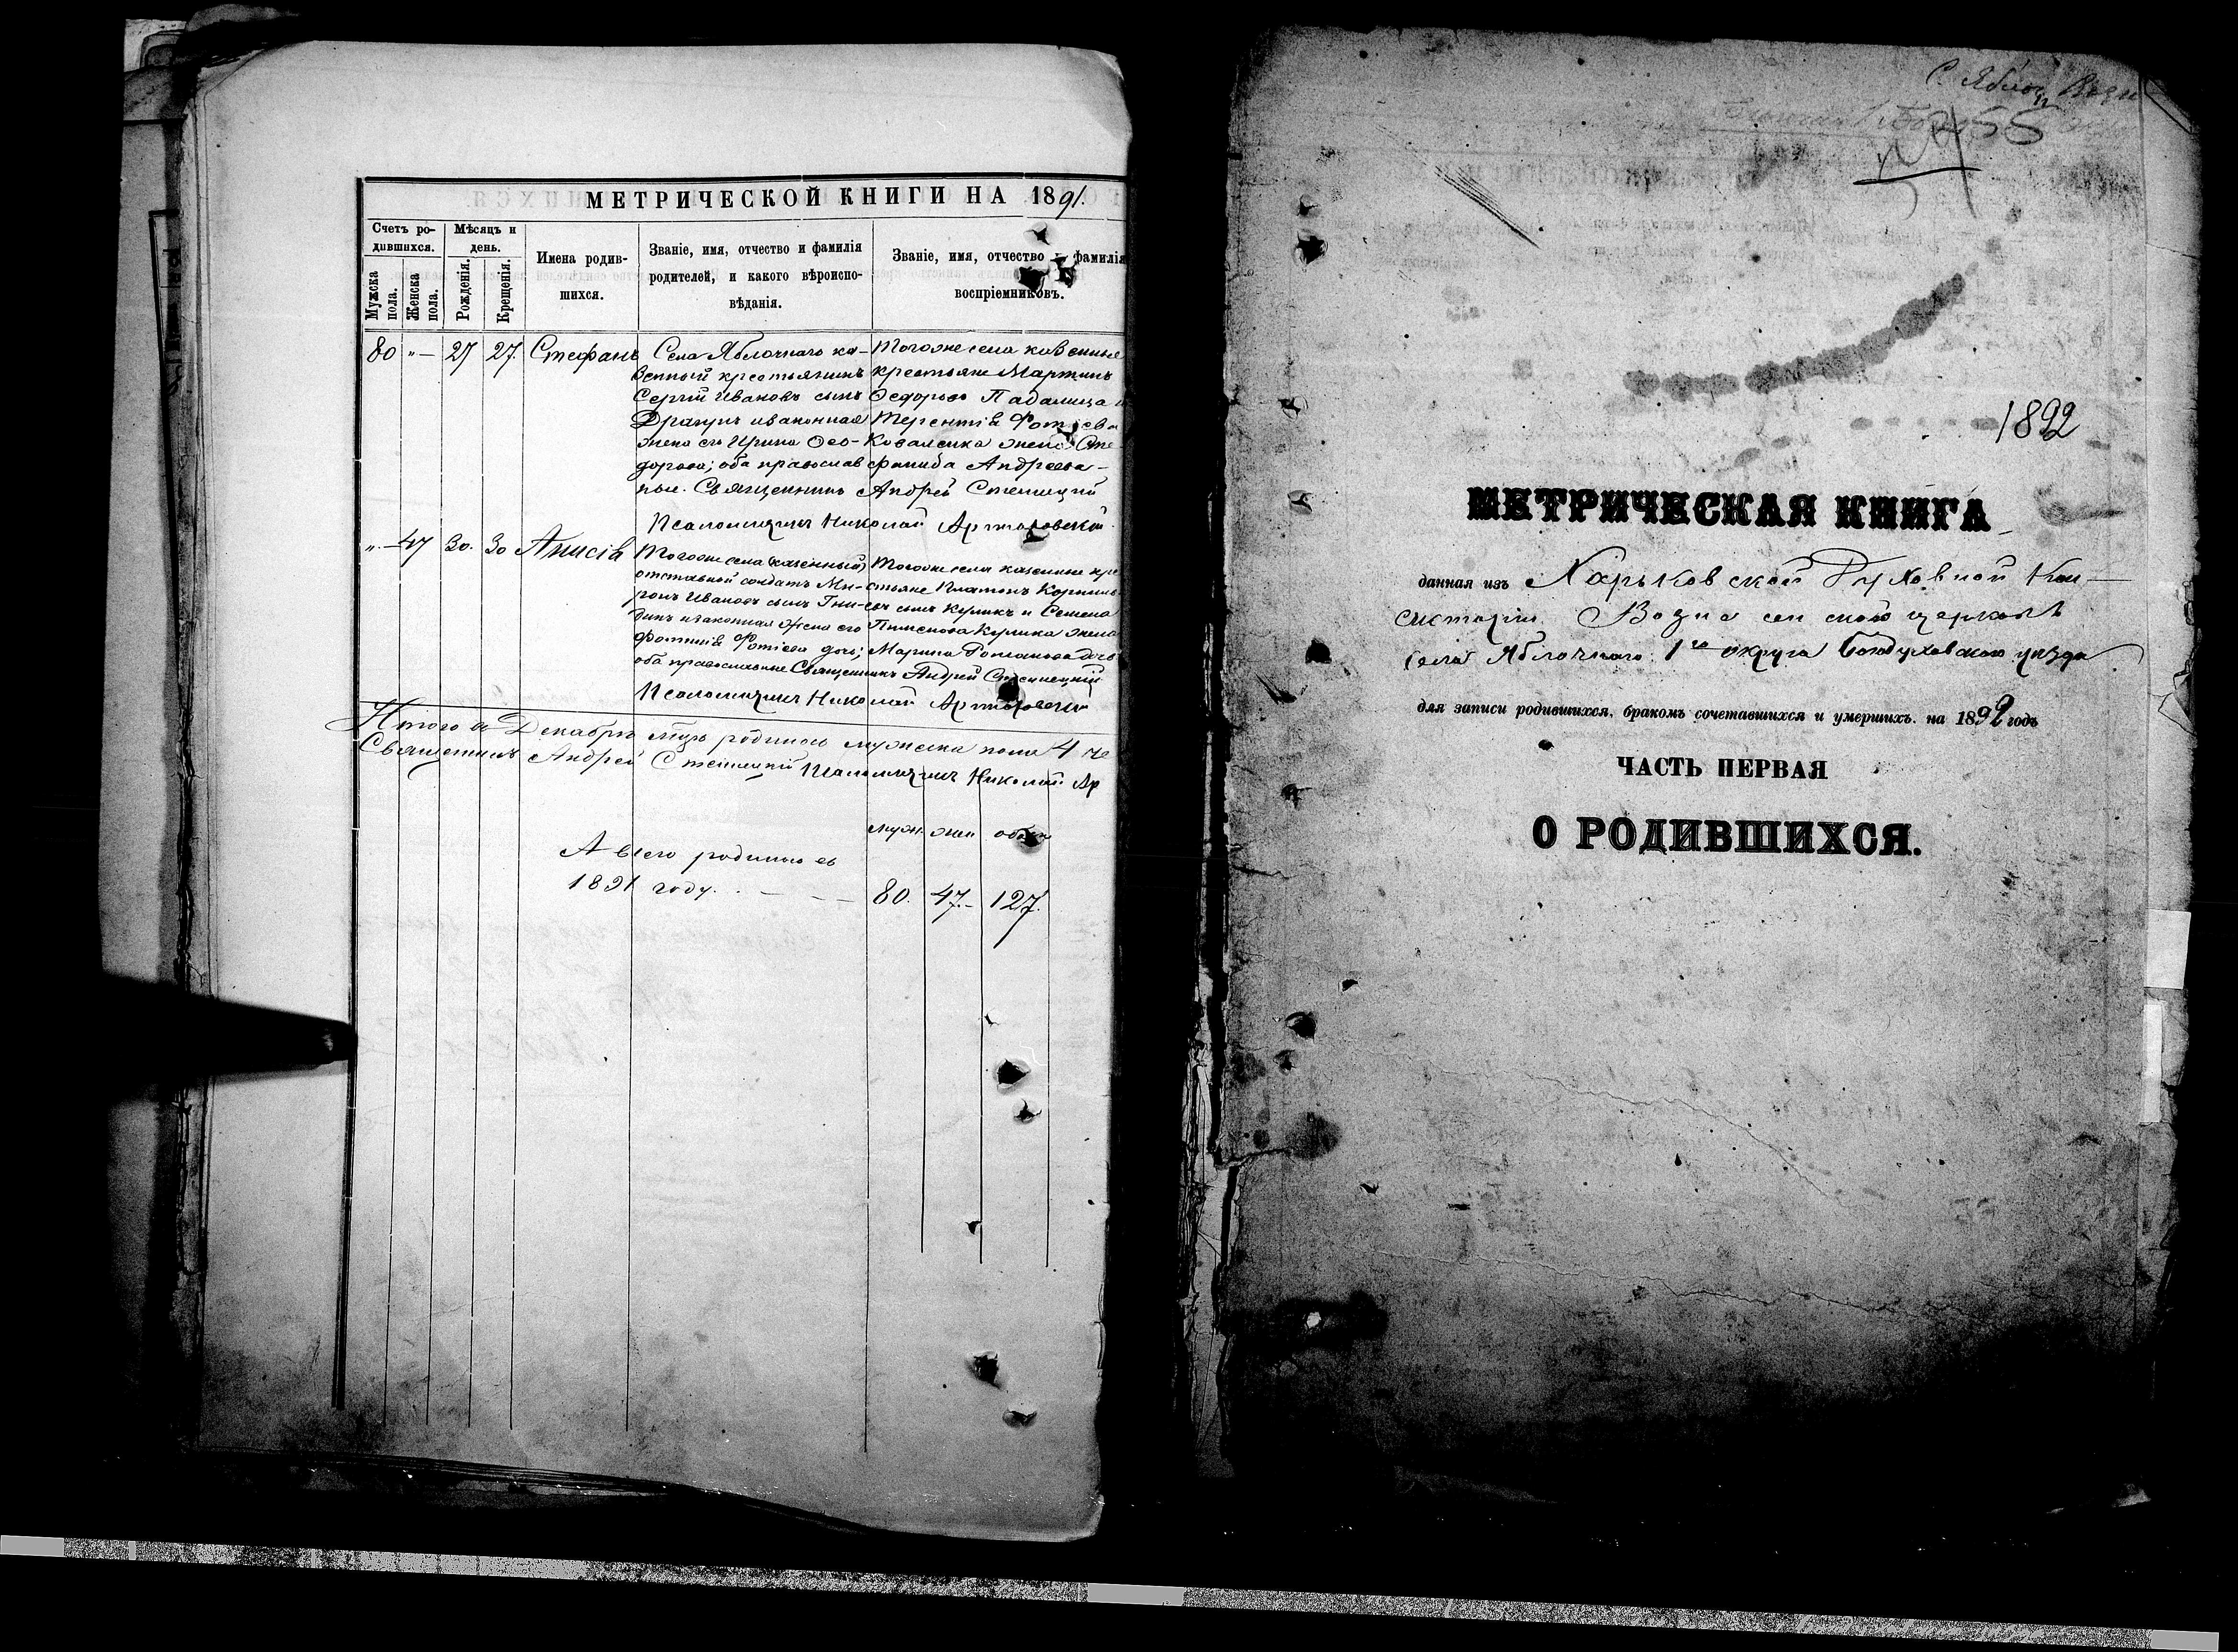 МЕТРИЧЕСКОЙ КНИГИ НА 1891.
Счетъ ро-
дившихся.
Мужска пола.
Женска пола.
Мѣсяцъ и
день.
Рожденія.
Крещенія.
Имена родив-
шихся.
Званіе, имя, отчество и фамилія
родителей, и какого вѣроиспо-
вѣданія.
Званіе, имя, отчество фамилія
воспріемниковъ.
80 „— 27 27. Стефанъ
Села Яблочнаго ка-
зенный крестьянинъ
Сергій Ивановъ сынъ
Драгунъ и законная
жена его Ирина Ѳео-
дорова; оба православ
ные. Священникъ Андрей
Тогоже села казенные
крестьяне Мартинъ
Ѳедоровъ
Терентія
Коваленка жена
Андреева
Псаломщикъ Николай
„.— 47 30. 30 Анисія
Тогоже села казенный
отставной солдатъ Ми-
ронъ Ивановъ сынъ Гни-
динъ и законная жена его
Фотіева дочь;
оба православные Священникъ Андрей
Тогоже села казенные кре
стьяне Платонъ Корнилі
евъ сынъ Куликъ и Семена
Пименова Кулика жена
Марина Романова дочь
Псаломщикъ Николай
Итого въ Декабрѣ мцѣ родилось мужска пола 4 че
Священникъ Андрей
Псаломщикъ Николай Ар
муж. жен обоего
А всего родилось въ
1891 году. — — — 80. 47.- 127.
С. Яблоч
1892
МЕТРИЧЕСКАЯ КНИГА
данная изъ Харьковской Духовной Кон-
систоріи Вознесенской церкви
села Яблочнаго 1го округа Богодуховскаго уѣзда
для записи родившихся, бракомъ сочетавшихся и умершихъ. на 1892 годъ
ЧАСТЬ ПЕРВАЯ
О РОДИВШИХСЯ.